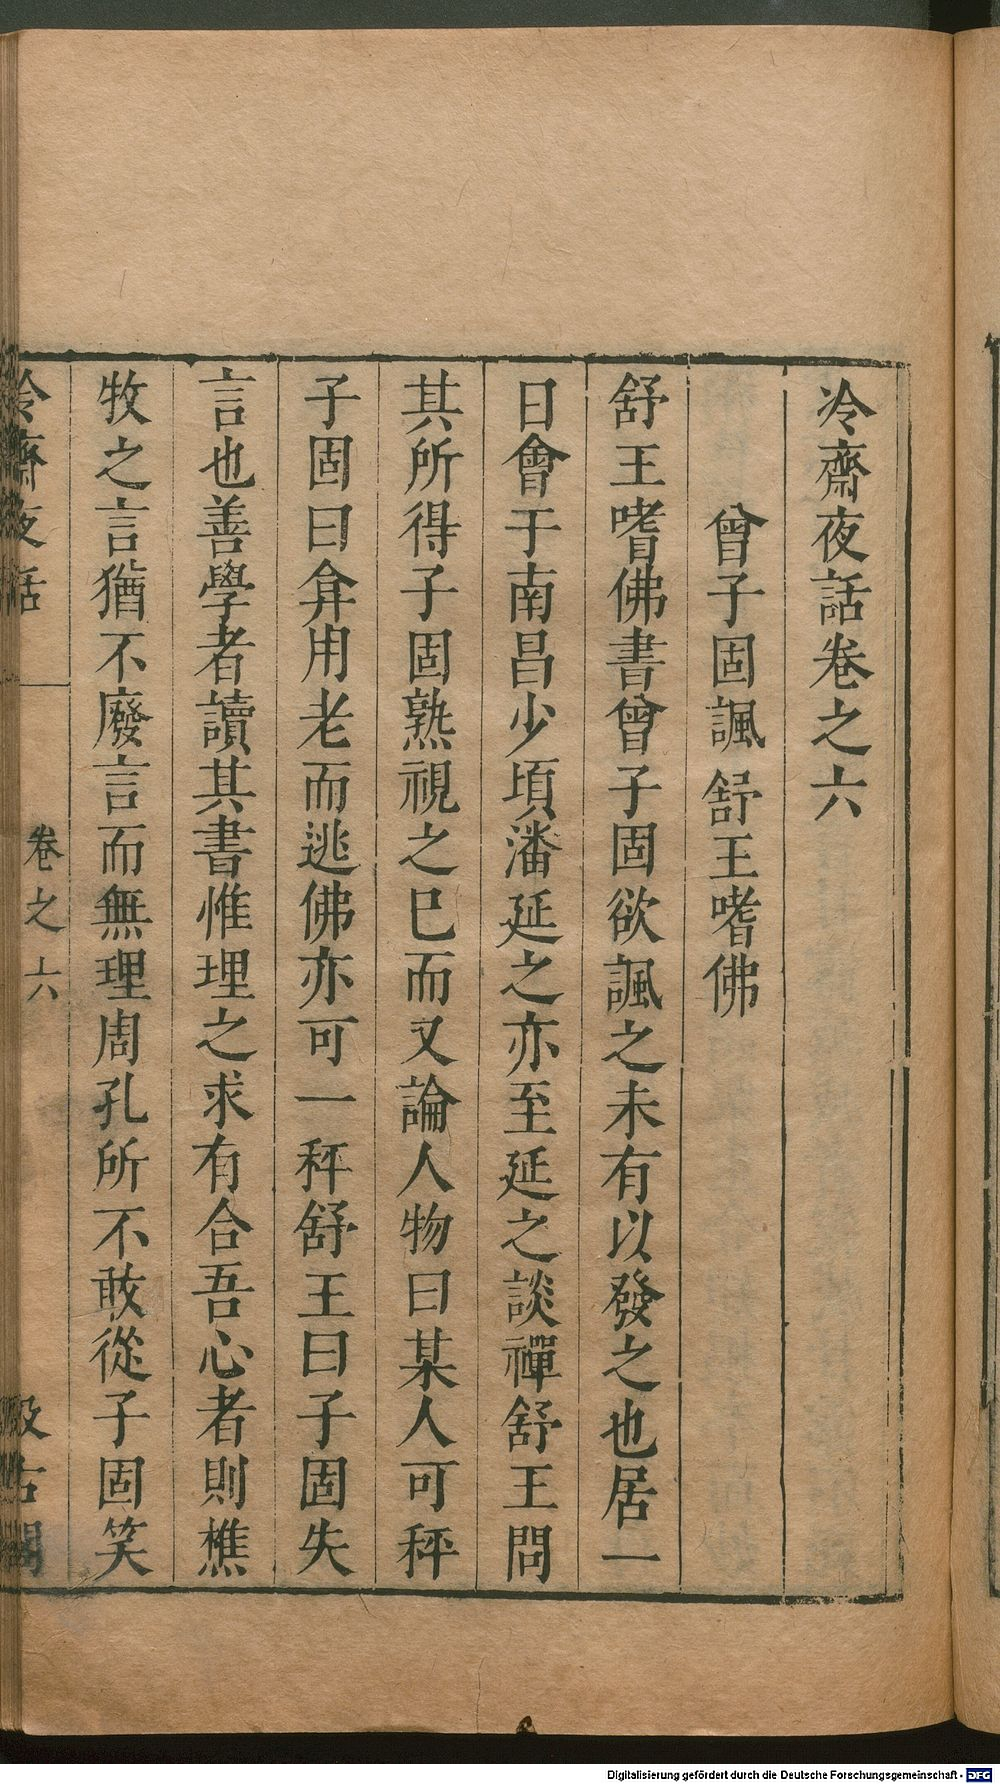 冷齋夜話卷之六
曾子固諷舒王嗜佛
舒王嗜佛書曾子固欲諷之未有以發之也居一
日會于南昌少頃潘延之亦至延之談禪舒王問
其所得子固熟視之已而又論人物曰某人可秤
子固曰弇用老而逃佛亦可一秤舒王曰子固失
言也善學者讀其書惟理之求有合吾心者則樵
牧之言猶不廢言而無理周孔所不敢從子固笑
冷齋夜話 卷之六 汲古閣
Digitalisierung gefördert durch die Deutsche Forschungsgemeinschaft - DFG